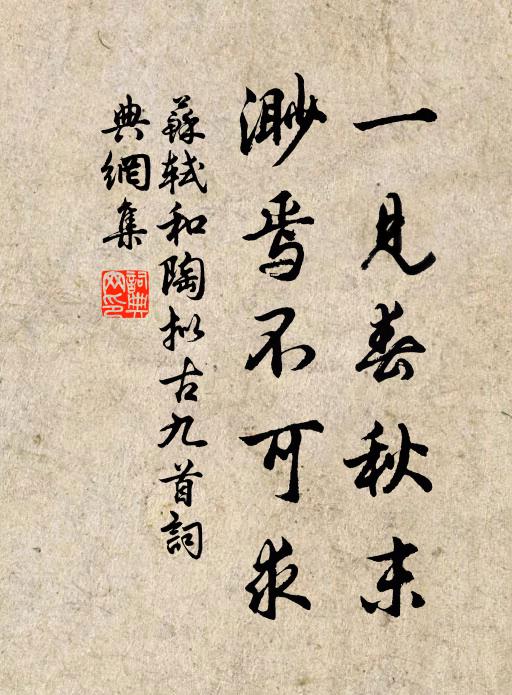 一見春秋末
渺焉不可求
蘇軾和陶擬古九首詞
典網集
詞典
网印